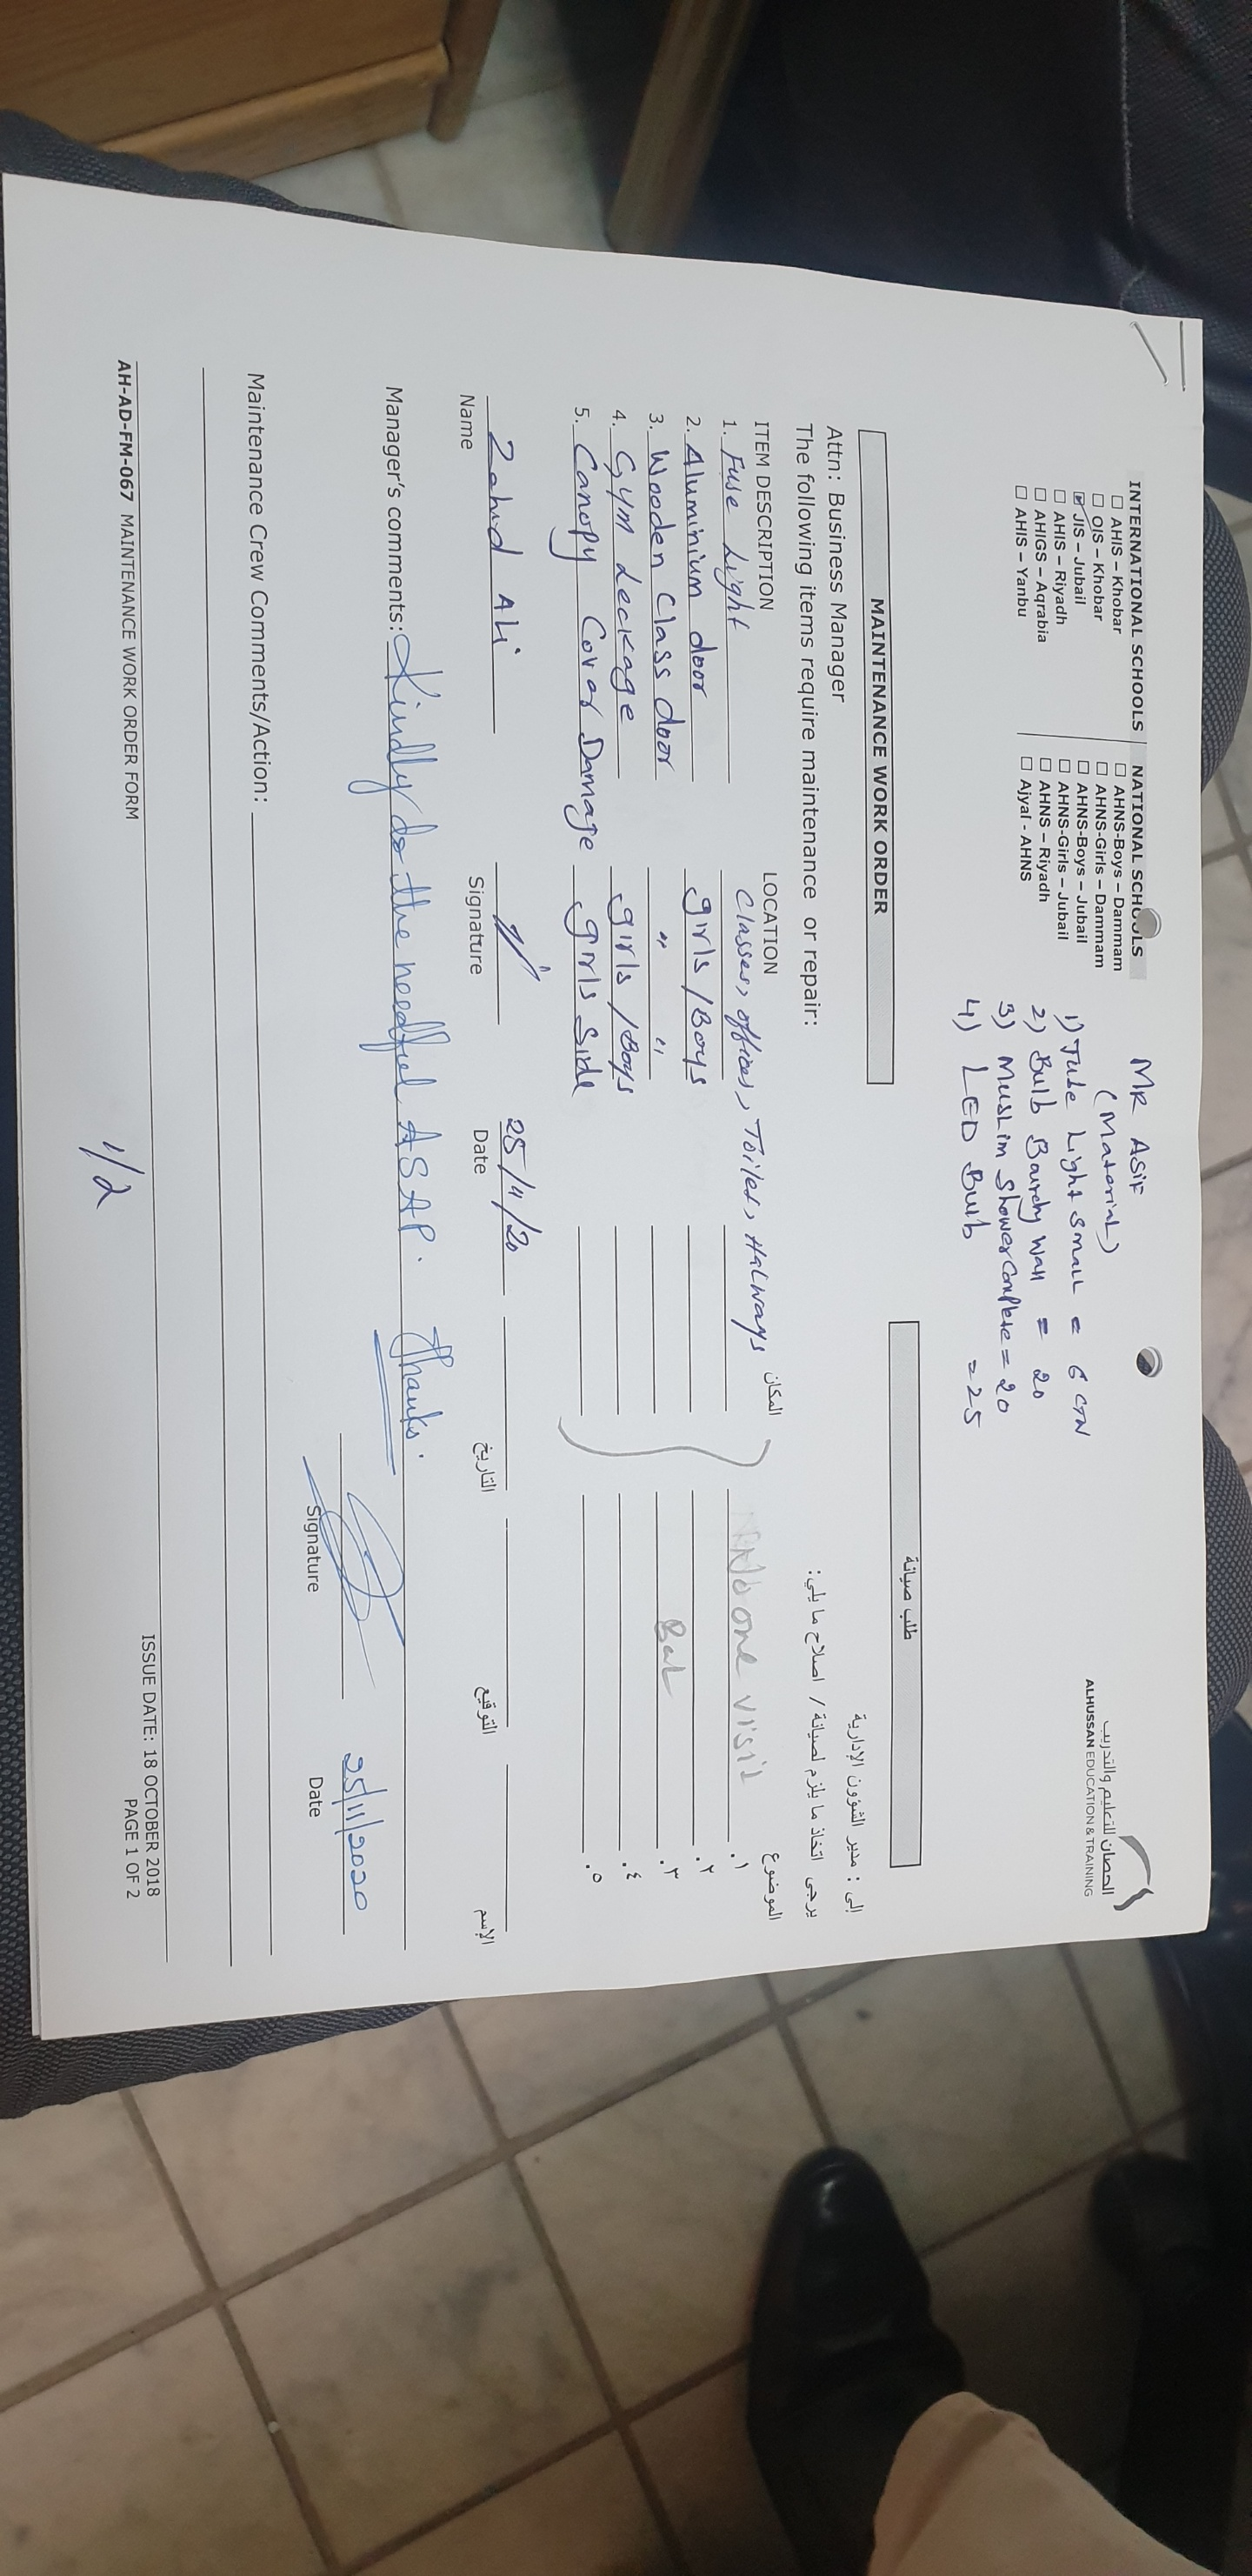 الحصان للتعليم والتدريب
ALHUSSAN EDUCATION & TRAINING
INTERNATIONAL SCHOOLS
☐ AHIS – Khobar
☐ OIS – Khobar
☑ JIS – Jubail
☐ AHIS – Riyadh
☐ AHIGS – Aqrabia
☐ AHIS – Yanbu
NATIONAL SCHOOLS
☐ AHNS-Boys – Dammam
☐ AHNS-Girls – Dammam
☐ AHNS-Boys – Jubail
☐ AHNS-Girls – Jubail
☐ AHNS – Riyadh
☐ Ajyal - AHNS
MR ASIF
(Material)
1) Tube Light small = 6 CTN
2) Bulb Wall = 20
3) Muslim Shower Complete = 20
4) LED Bulb = 25
MAINTENANCE WORK ORDER
طلب صيانة
Attn: Business Manager
إلى : مدير الشؤون الإدارية
The following items require maintenance or repair:
يرجى اتخاذ ما يلزم لصيانة / اصلاح ما يلي:
ITEM DESCRIPTION LOCATION المكان الموضوع
1. Fuse Light Classes, offices, Toilet, Halways No one visit ١.
2. Aluminium door girls/Boys ٢.
3. Wooden Class door " " ٣.
4. Gym Leckage girls/Boys ٤.
5. Canopy Cover Damage girls Side ٥.
Zahid Ali 25/11/20
Name Signature Date التاريخ التوقيع الإسم
Manager's comments: Kindly do the needful ASAP. Thanks.
25/11/2020
Signature Date
Maintenance Crew Comments/Action:
AH-AD-FM-067 MAINTENANCE WORK ORDER FORM
ISSUE DATE: 18 OCTOBER 2018
PAGE 1 OF 2
1/2